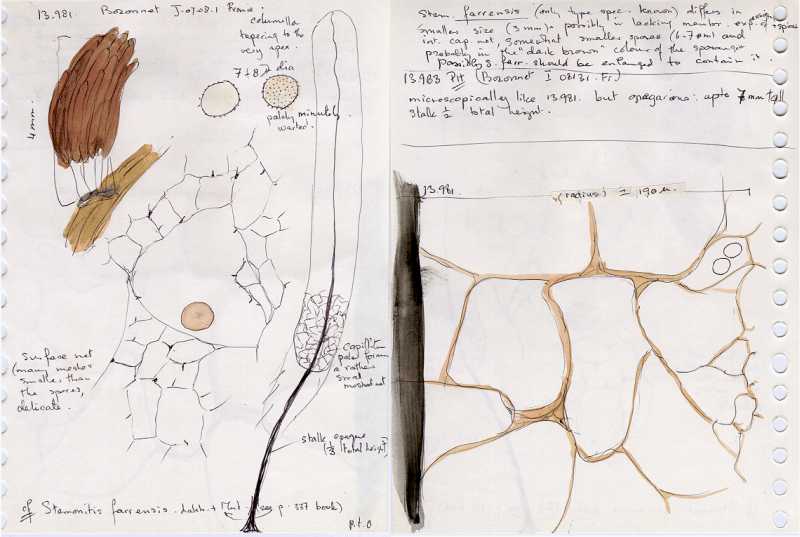 13.981. Bozonnet J.0708.1 France:
columella
tapering to the
very apex.
7+8 dia
palely minutely
warted.
4 mm.
surface net
(many meshes
smaller than
the spores,
delicate.
Capillitium
pale forming
a rather
small
meshed net
stalk opaque
total height
cf Stemonitis farrensis (see p. 557 book)
P.T.O
Stem. farrensis (only type spec. known) differs in
smaller size (3 mm) + possibly in lacking membr. exp.
int. cap. net, somewhat smaller spores (6-7 dia) and
probably in the "dark brown" colour of the sporangia
possibly S. farr. should be enlarged to contain it.
13.983 (Bozonnet I 08131. Fr.)
microscopically like 13.981. but up to 7 mm tall
stalk ½ total height.
13.981.
(radius) ± 190 µ.